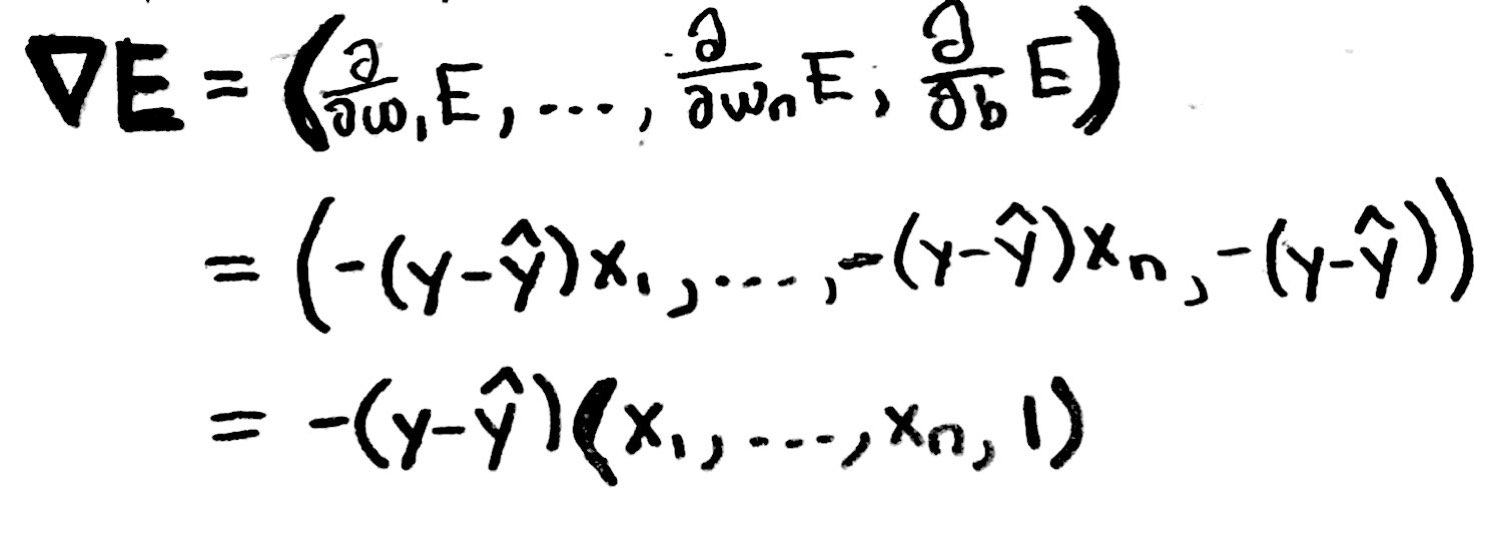 ∇E = (∂/∂w₁ E, ..., ∂/∂wₙ E, ∂/∂b E)
= (-(y-ŷ)x₁, ..., -(y-ŷ)xₙ, -(y-ŷ))
= -(y-ŷ)(x₁, ..., xₙ, 1)